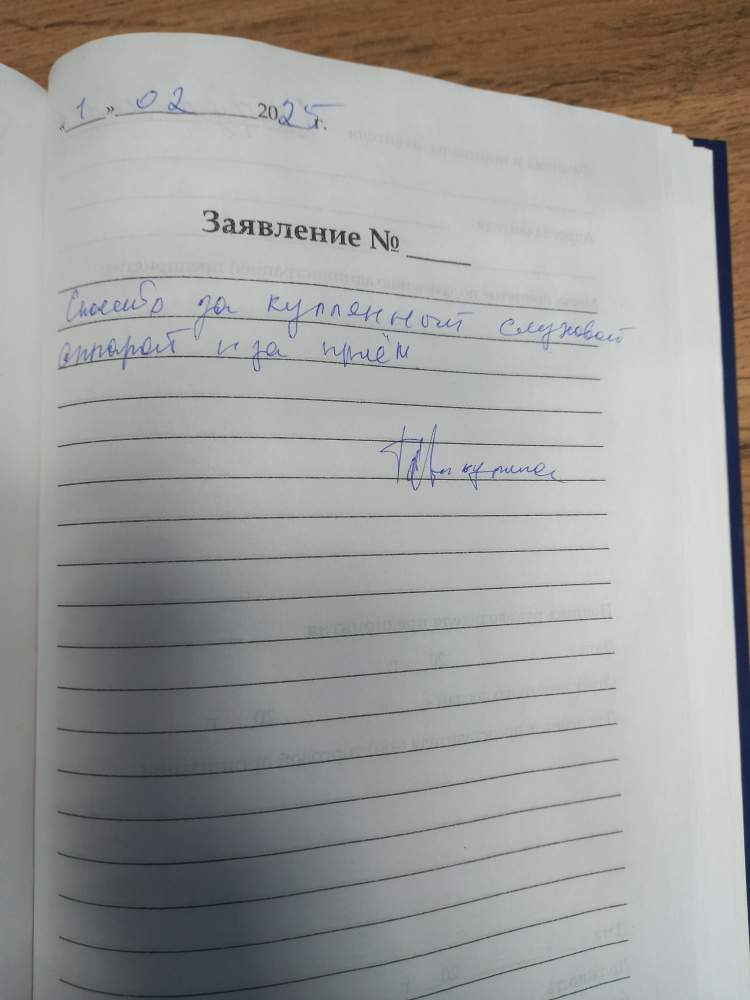 «1» 02 2025г.
Заявление №
Спасибо за куплянный слуховой
аппарат и за приём